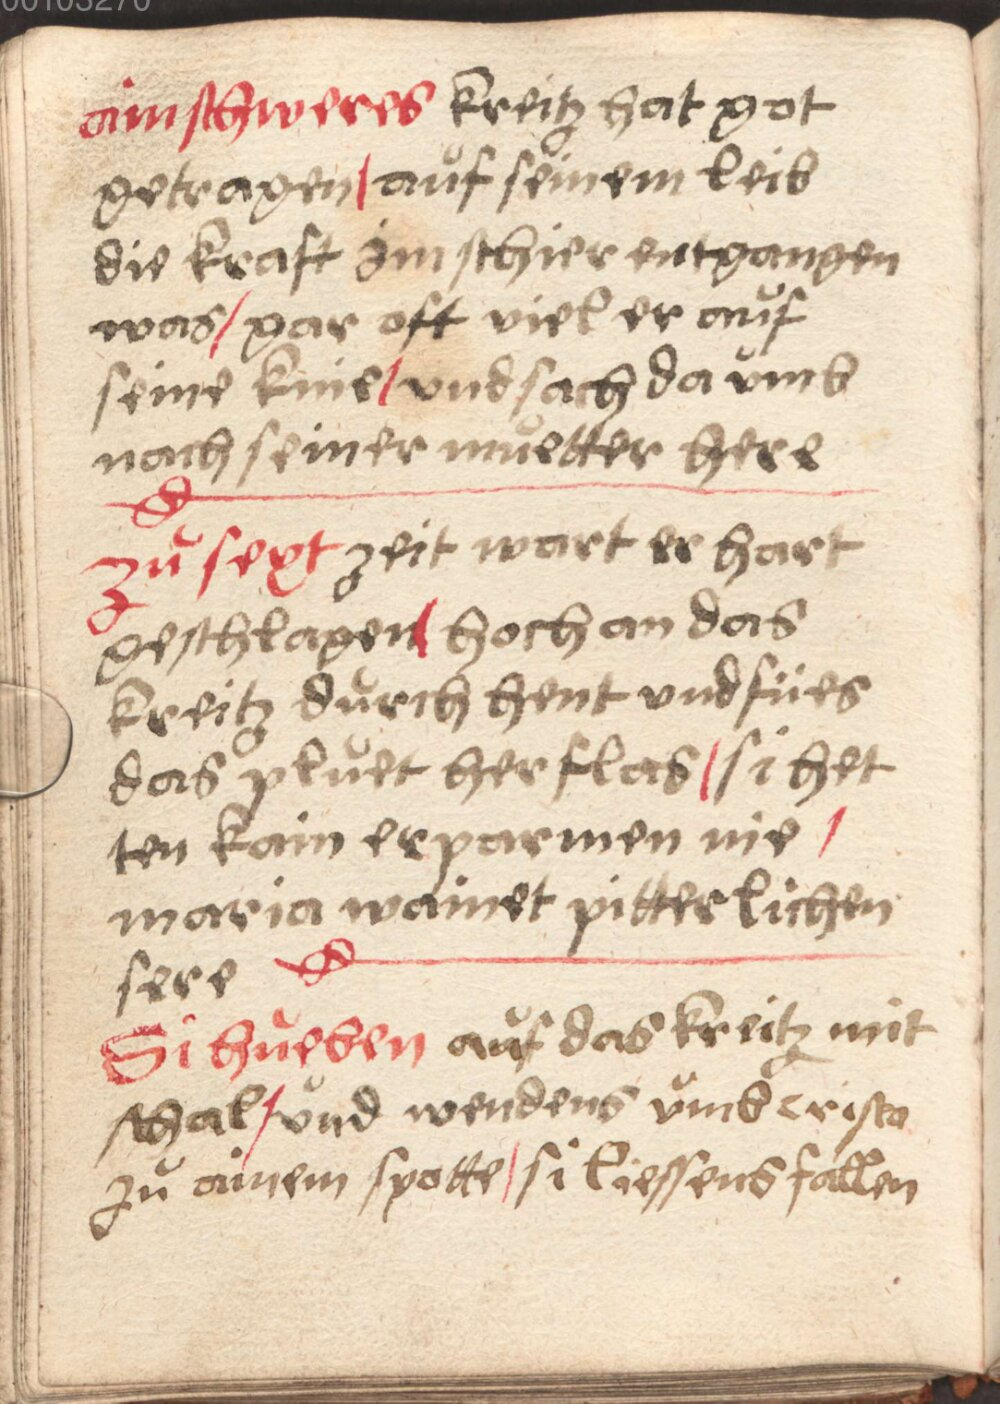 00103270
ain schweres kreitz hat got
getragen / auf seinem leib
die kraft im schier entgangen
was / gar oft viel er auf
seine knie / vnd sach da vmb
nach seiner muetter here
Zu sext zeit wart er hart
geschlagen / hoch an das
kreitz durch hent vnd fües
das pluet her flas / si het
ten kain erparmen nie /
maria wainet pitterlichen
sere
Si hueben auf das kreitz mit
schal / vnd wendens vmb crista
zu ainem spotte / si liessens fallen